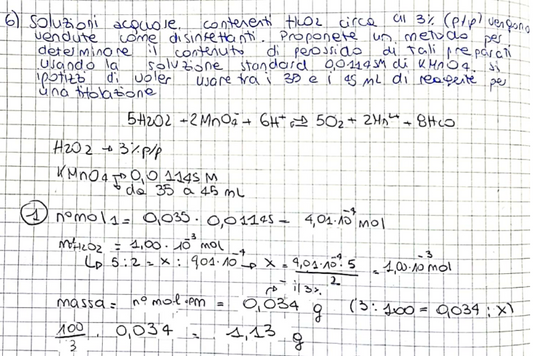 6) Soluzioni acquose contenenti H2O2 circa al 3% (p/p) vengono
vendute come disinfettanti. Proponete un metodo per
determinare il contenuto di perossido di tali preparati
usando la soluzione standard 0,0114SM di KMnO4. Si
ipotizzi di voler usare tra i 35 e i 45 mL di reagente per
una titolazione
5H2O2 + 2MnO4⁻ + 6H⁺ ⇌ 5O2 + 2Mn²⁺ + 8H2O
H2O2 → 3% p/p
KMnO4 → 0,01145 M
↳ da 35 a 45 mL
① n°mol1 = 0,035 · 0,01145 = 4,01·10⁻⁴ mol
n°H2O2 = 1,00 · 10⁻³ mol
↳ 5:2 = x : 4,01·10⁻⁴ → x = 4,01·10⁻⁴·5 / 2 = 1,00·10⁻³ mol
→ il 3%
massa = n°mol·pm = 0,034 g (3:100 = 0,034 : x)
100/3 · 0,034 = 1,13 g